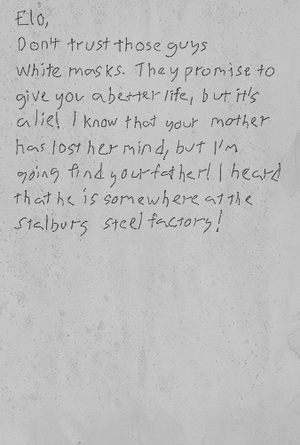 Elo,
Don't trust those guys
white masks. They promise to
give you a better life, but it's
a lie! I know that your mother
has lost her mind, but I'm
going find your father! I heard
that he is somewhere at the
Stalburg steel factory!